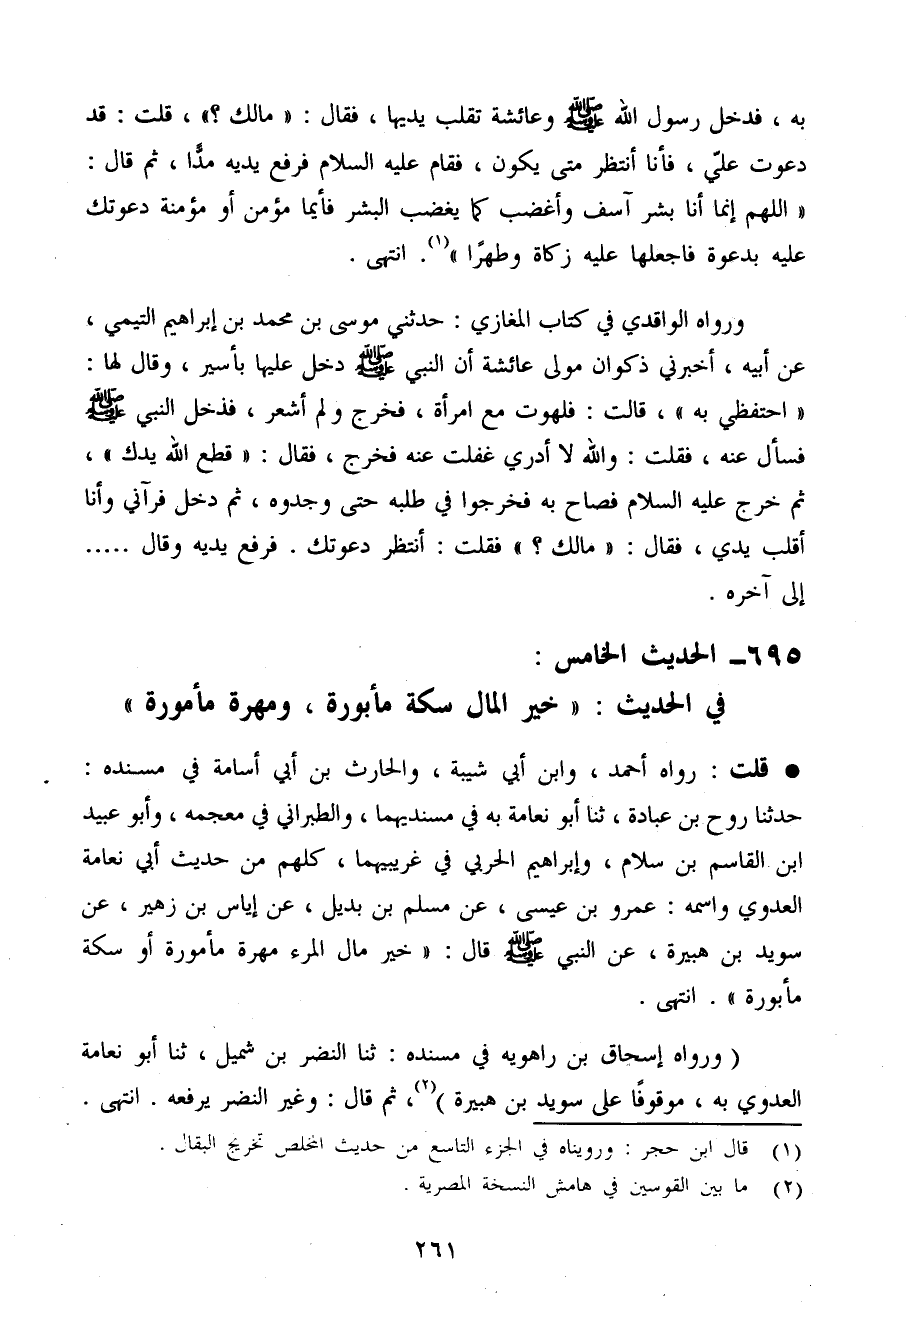 به ، فدخل رسول الله ﷺ وعائشة تقلب يديها ، فقال : « مالك ؟» ، قلت : قد
دعوت عليّ ، فأنا أنتظر متى يكون ، فقام عليه السلام فرفع يديه مدًّا ، ثم قال :
« اللهم إنما أنا بشر آسف وأغضب كما يغضب البشر فأيما مؤمن أو مؤمنة دعوتك
عليه بدعوة فاجعلها عليه زكاة وطهرًا »(١). انتهى .
ورواه الواقدي في كتاب المغازي : حدثني موسى بن محمد بن إبراهيم التيمي ،
عن أبيه ، أخبرني ذكوان مولى عائشة أن النبي ﷺ دخل عليها بأسير ، وقال لها :
« احتفظي به » ، قالت : فلهوت مع امرأة ، فخرج ولم أشعر ، فدخل النبي ﷺ
فسأل عنه ، فقلت : والله لا أدري غفلت عنه فخرج ، فقال : « قطع الله يدك » ،
ثم خرج عليه السلام فصاح به فخرجوا في طلبه حتى وجدوه ، ثم دخل فرآني وأنا
أقلب يدي ، فقال : « مالك ؟ » فقلت : أنتظر دعوتك . فرفع يديه وقال .....
إلى آخره .
٦٩٥ـ الحديث الخامس :
في الحديث : « خير المال سكة مأبورة ، ومهرة مأمورة »
● قلت : رواه أحمد ، وابن أبي شيبة ، والحارث بن أبي أسامة في مسنده :
حدثنا روح بن عبادة ، ثنا أبو نعامة به في مسنديهما ، والطبراني في معجمه ، وأبو عبيد
ابن القاسم بن سلام ، وإبراهيم الحربي في غريبيهما ، كلهم من حديث أبي نعامة
العدوي واسمه : عمرو بن عيسى ، عن مسلم بن بديل ، عن إياس بن زهير ، عن
سويد بن هبيرة ، عن النبي ﷺ قال : « خير مال المرء مهرة مأمورة أو سكة
مأبورة » . انتهى .
( ورواه إسحاق بن راهويه في مسنده : ثنا النضر بن شميل ، ثنا أبو نعامة
العدوي به ، موقوفًا على سويد بن هبيرة )(٢)، ثم قال : وغير النضر يرفعه . انتهى .
(١) قال ابن حجر : ورويناه في الجزء التاسع من حديث المخلص تخريج البقال .
(٢) ما بين القوسين في هامش النسخة المصرية .
٢٦١